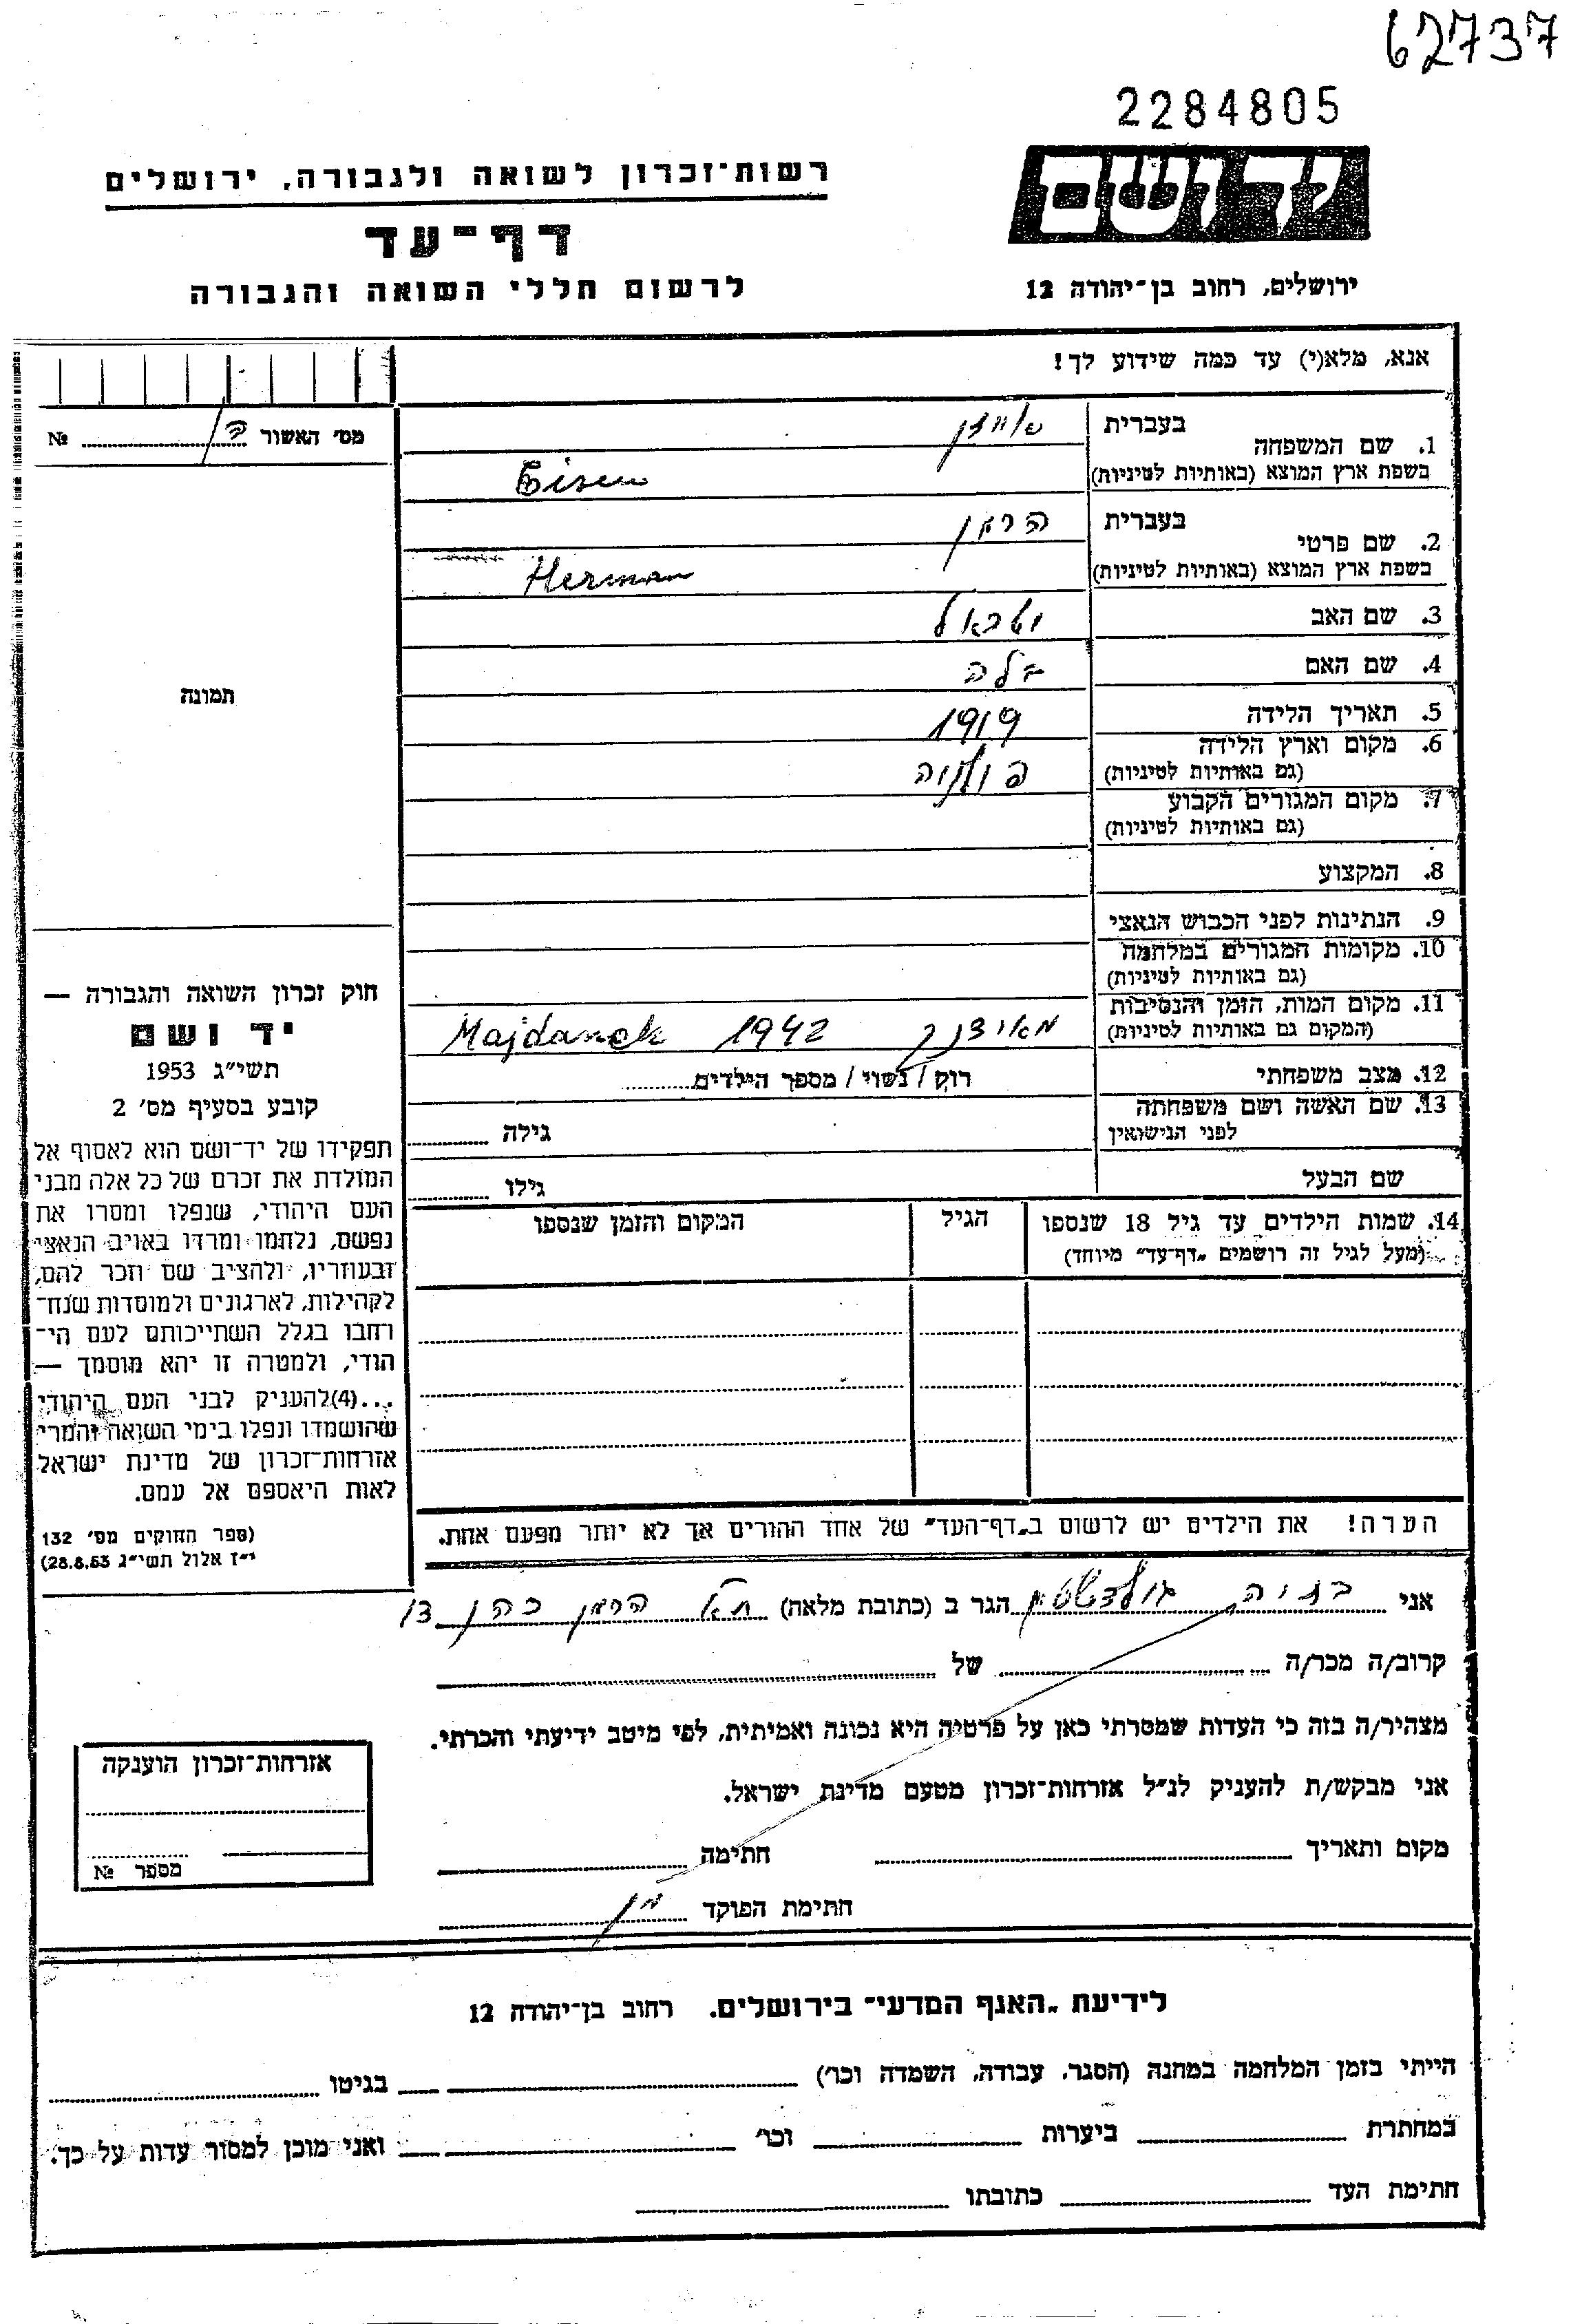 62737
2284805
יד ושם
רשות־זכרון לשואה ולגבורה, ירושלים
דף־עד
לרשום חללי השואה והגבורה
ירושלים, רחוב בן־יהודה 12
אנא, מלא(י) עד כמה שידוע לך!
מס' האשור № ה/
1. שם המשפחה בעברית אייזן
בשפת ארץ המוצא (באותיות לטיניות) Eisen
2. שם פרטי בעברית הרמן
בשפת ארץ המוצא (באותיות לטיניות) Herman
3. שם האב ישראל
4. שם האם בלה
5. תאריך הלידה 1919
6. מקום וארץ הלידה פולניה
(גם באותיות לטיניות)
7. מקום המגורים הקבוע
(גם באותיות לטיניות)
8. המקצוע
9. הנתינות לפני הכבוש הנאצי
10. מקומות המגורים במלחמה
(גם באותיות לטיניות)
11. מקום המות, הזמן והנסיבות
(המקום גם באותיות לטיניות) מאידנק 1942 Majdanek
12. מצב משפחתי רוק / נשוי / מספר הילדים
13. שם האשה ושם משפחתה
לפני הנישואין גילה
שם הבעל גילו
14. שמות הילדים עד גיל 18 שנספו הגיל המקום והזמן שנספו
(מעל לגיל זה רושמים "דף־עד" מיוחד)
הערה! את הילדים יש לרשום ב"דף־העד" של אחד ההורים אך לא יותר מפעם אחת.
תמונה
חוק זכרון השואה והגבורה —
יד ושם
תשי"ג 1953
קובע בסעיף מס' 2
תפקידו של יד־ושם הוא לאסוף אל
המולדת את זכרם של כל אלה מבני
העם היהודי, שנפלו ומסרו את
נפשם, נלחמו ומרדו באויב הנאצי
ובעוזריו, ולהציב שם וזכר להם,
לקהילות, לארגונים ולמוסדות שנח־
רחבו בגלל השתייכותם לעם הי־
הודי, ולמטרה זו יהא מוסמך —
...(4)להעניק לבני העם היהודי
שהושמדו ונפלו בימי השואה והמרי
אזרחות־זכרון של מדינת ישראל
לאות היאספם אל עמם.
(ספר החוקים מס' 132
י"ז אלול תשי"ג 28.8.53)
אני בתיה גולדשטין הגר ב (כתובת מלאה) ת"א הרמן כהן 13
קרוב/ה מכר/ה של
מצהיר/ה בזה כי העדות שמסרתי כאן על פרטיה היא נכונה ואמיתית, לפי מיטב ידיעתי והכרתי.
אני מבקש/ת להעניק לנ"ל אזרחות־זכרון מטעם מדינת ישראל.
מקום ותאריך חתימה
חתימת הפוקד
אזרחות־זכרון הוענקה
מספר №
לידיעת "האגף המדעי" בירושלים. רחוב בן־יהודה 12
הייתי בזמן המלחמה במחנה (הסגר, עבודה, השמדה וכו') בגיטו
במחתרת ביערות וכו' ואני מוכן למסור עדות על כך.
חתימת העד כתובתו